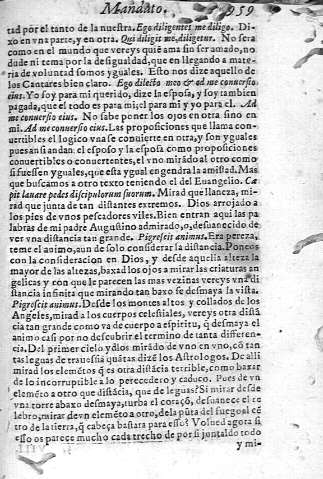 Mandato. 959
tad por el tanto de la nuestra. Ego diligentes me diligo. Di-
xo en vna parte, y en otra. Qui diligit me, diligetur. No sera
como en el mundo que vereys quiẽ ama sin ser amado, no
dude ni tema por la desigualdad, que en llegando a mate-
ria de voluntad somos yguales. Esto nos dize aquello de
los Cantares bien claro. Ego dilecto meo & ad me conuersio
eius. Yo soy para mi querido, dize la esposa, y soy tambien
pagada, que el todo es para mi; el para mi y yo para el. Ad
me conuersio eius. No sabe poner los ojos en otra sino en
mi. Ad me conuersio eius. Las proposiciones que llama con-
uertibles el logico vna se conuierte en otra, y son yguales
pues ansi andan el esposo y la esposa como proposiciones
conuertibles o conuertentes, el vno mirãdo al otro como
si fuessen yguales, que esta ygual engendra la amistad. Mas
que buscamos a otro texto teniendo el del Euangelio. Cæ-
pit lauare pedes discipulorum suorum. Mirad que llaneza, mi-
rad que junta de tan distantes extremos. Dios arrojado a
los pies de vnos pescadores viles. Bien entran aqui las pa
labras de mi padre Augustino admirado, o, desuanecido de
ver vna distancia tan grande. Pigrescit animus. Era pereza,
teme el animo, aun de solo considerar la distãcia. Poneos
con la consideracion en Dios, y desde aquella alteza la
mayor de las altezas, baxad los ojos a mirar las criaturas an
gelicas y con que le parecen las mas vezinas vereys vna di-
stancia infinita que mirando tan baxo se desmaya la vista.
Pigrescit animus. Desde los montes altos y collados de los
Angeles, mirad a los cuerpos celestiales, vereys otra distã
cia tan grande como va de cuerpo a espiritu, q̃ desmaya el
animo casi por no descubrir el termino de tanta differen-
cia. Del primer cielo, ydlos mirãdo de vno en vno, cõ tan
tas leguas de trauessia quãtas dizẽ los Astrologos. De alli
mirad los elemẽtos q̃ es otra distãcia terrible, como baxar
de lo incorruptible a lo perecedero y caduco. Pues de vn
elemẽto a otro que distãcia, que de leguas? Si mirar desde
vna torre abaxo desmaya, turba el coraçõ, desuanece el ce
lebro, mirar de vn elemẽto a otro, de la pũta del fuego al cẽ
tro de la tierra, q̃ cabeça bastara para esso? Volued agora si
esso os parece mucho cada trecho de por si juntaldo todo
y mi-